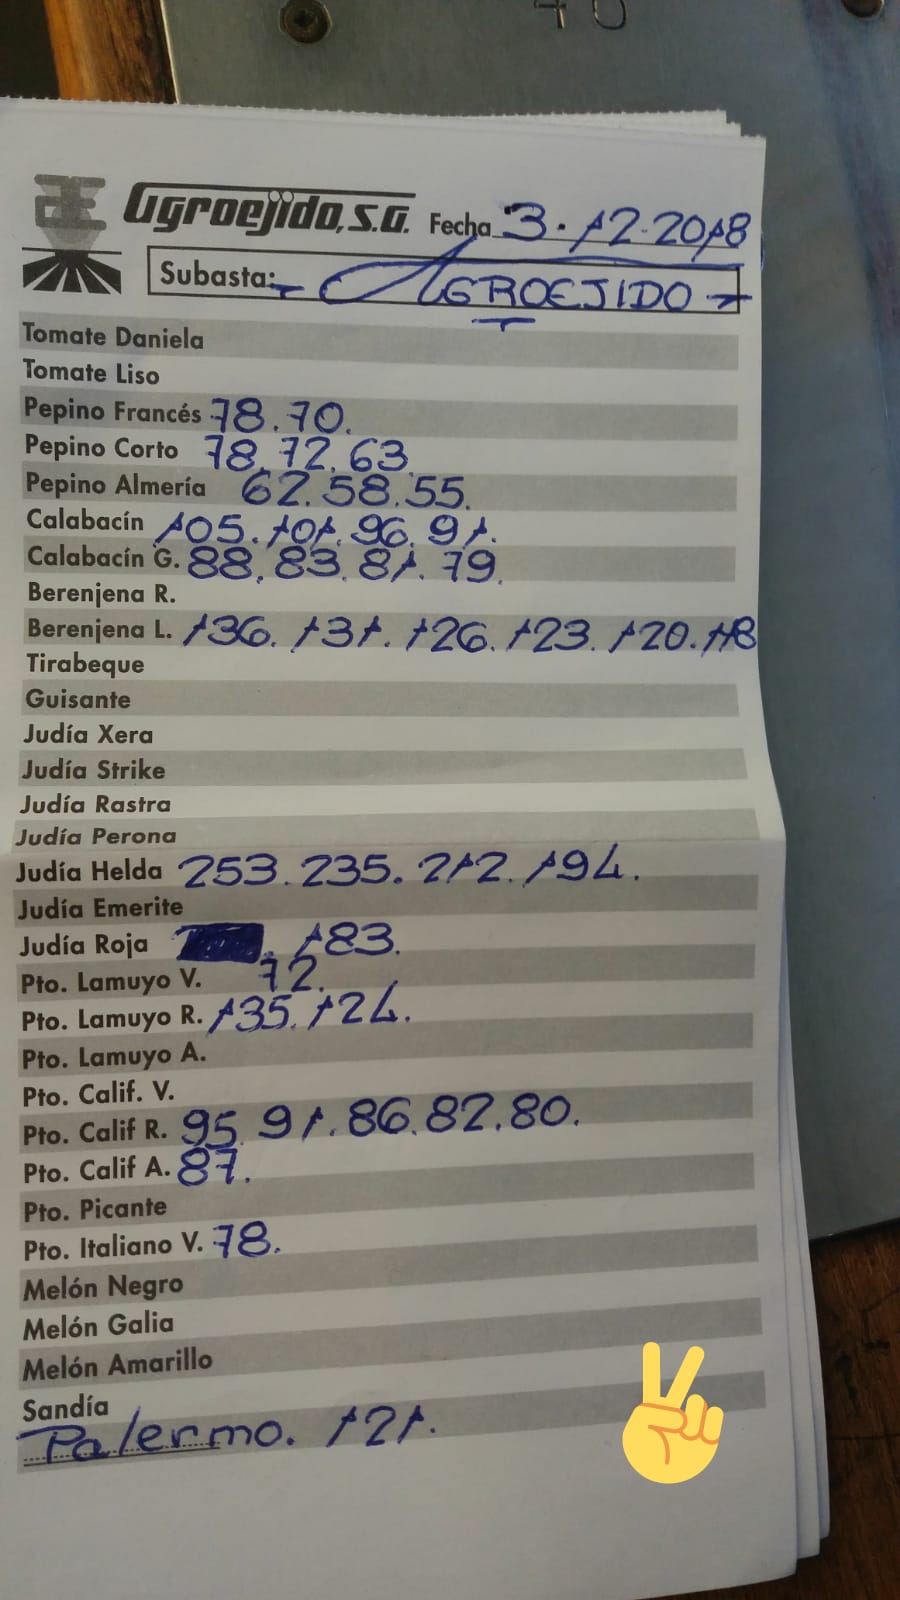 40
Agroejido, S.A. Fecha 3.12.2018
Subasta: - AGROEJIDO -
Tomate Daniela
Tomate Liso
Pepino Francés 78.70.
Pepino Corto 78.72.63
Pepino Almería 62.58.55.
Calabacín 105.101.96.91.
Calabacín G. 88.83.81.79.
Berenjena R.
Berenjena L. 136.131.126.123.120.118
Tirabeque
Guisante
Judía Xera
Judía Strike
Judía Rastra
Judía Perona
Judía Helda 253.235.212.194.
Judía Emerite
Judía Roja . 183.
Pto. Lamuyo V. 72.
Pto. Lamuyo R. 135.124.
Pto. Lamuyo A.
Pto. Calif. V.
Pto. Calif R. 95.91.86.82.80.
Pto. Calif A. 87.
Pto. Picante
Pto. Italiano V. 78.
Melón Negro
Melón Galia
Melón Amarillo
Sandía
Palermo. 121.